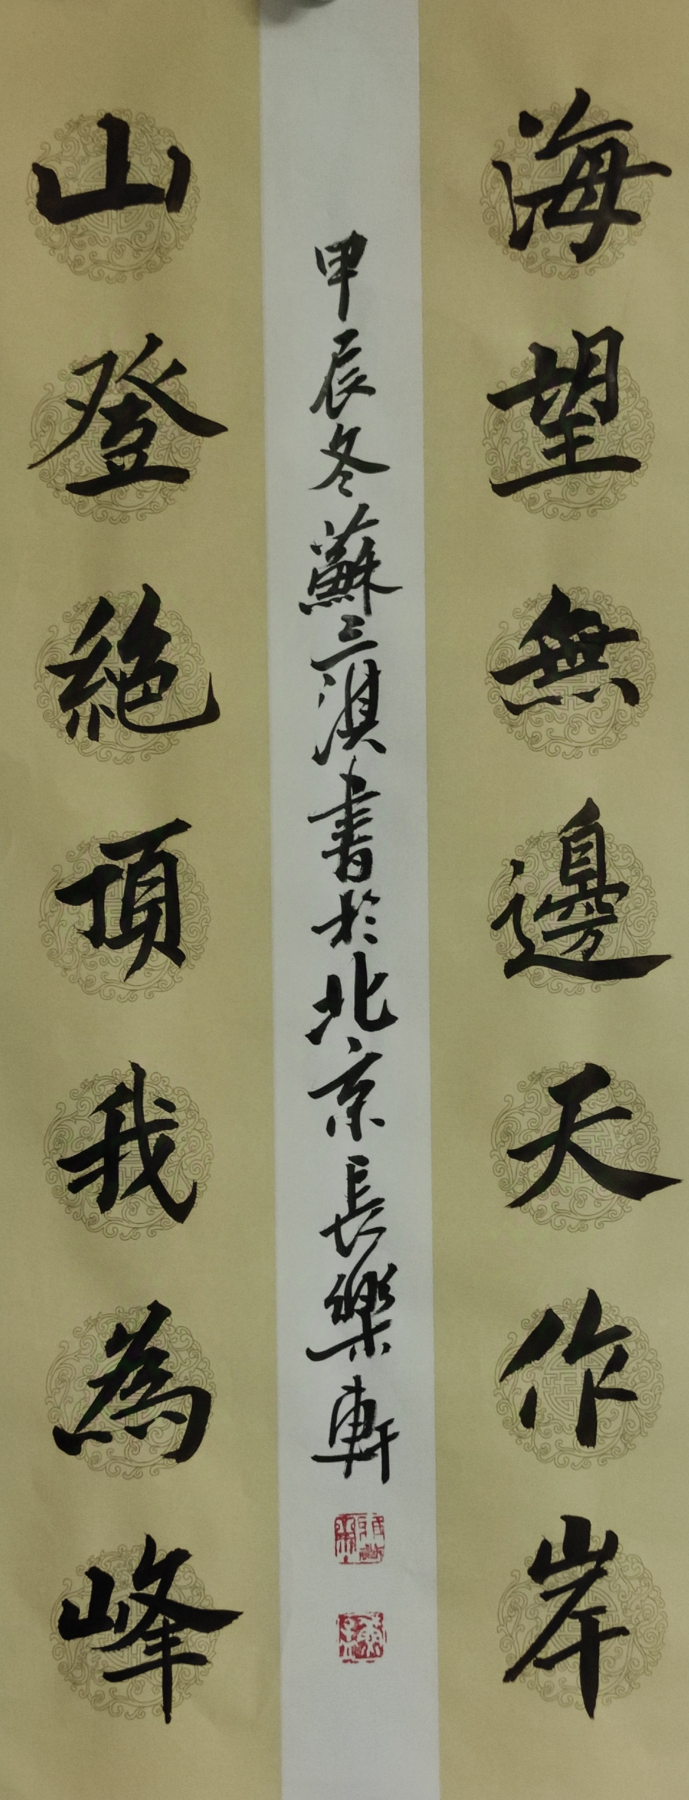 海望無邊天作岸
山登絕頂我為峰
甲辰冬蘇三淇書於北京長樂軒